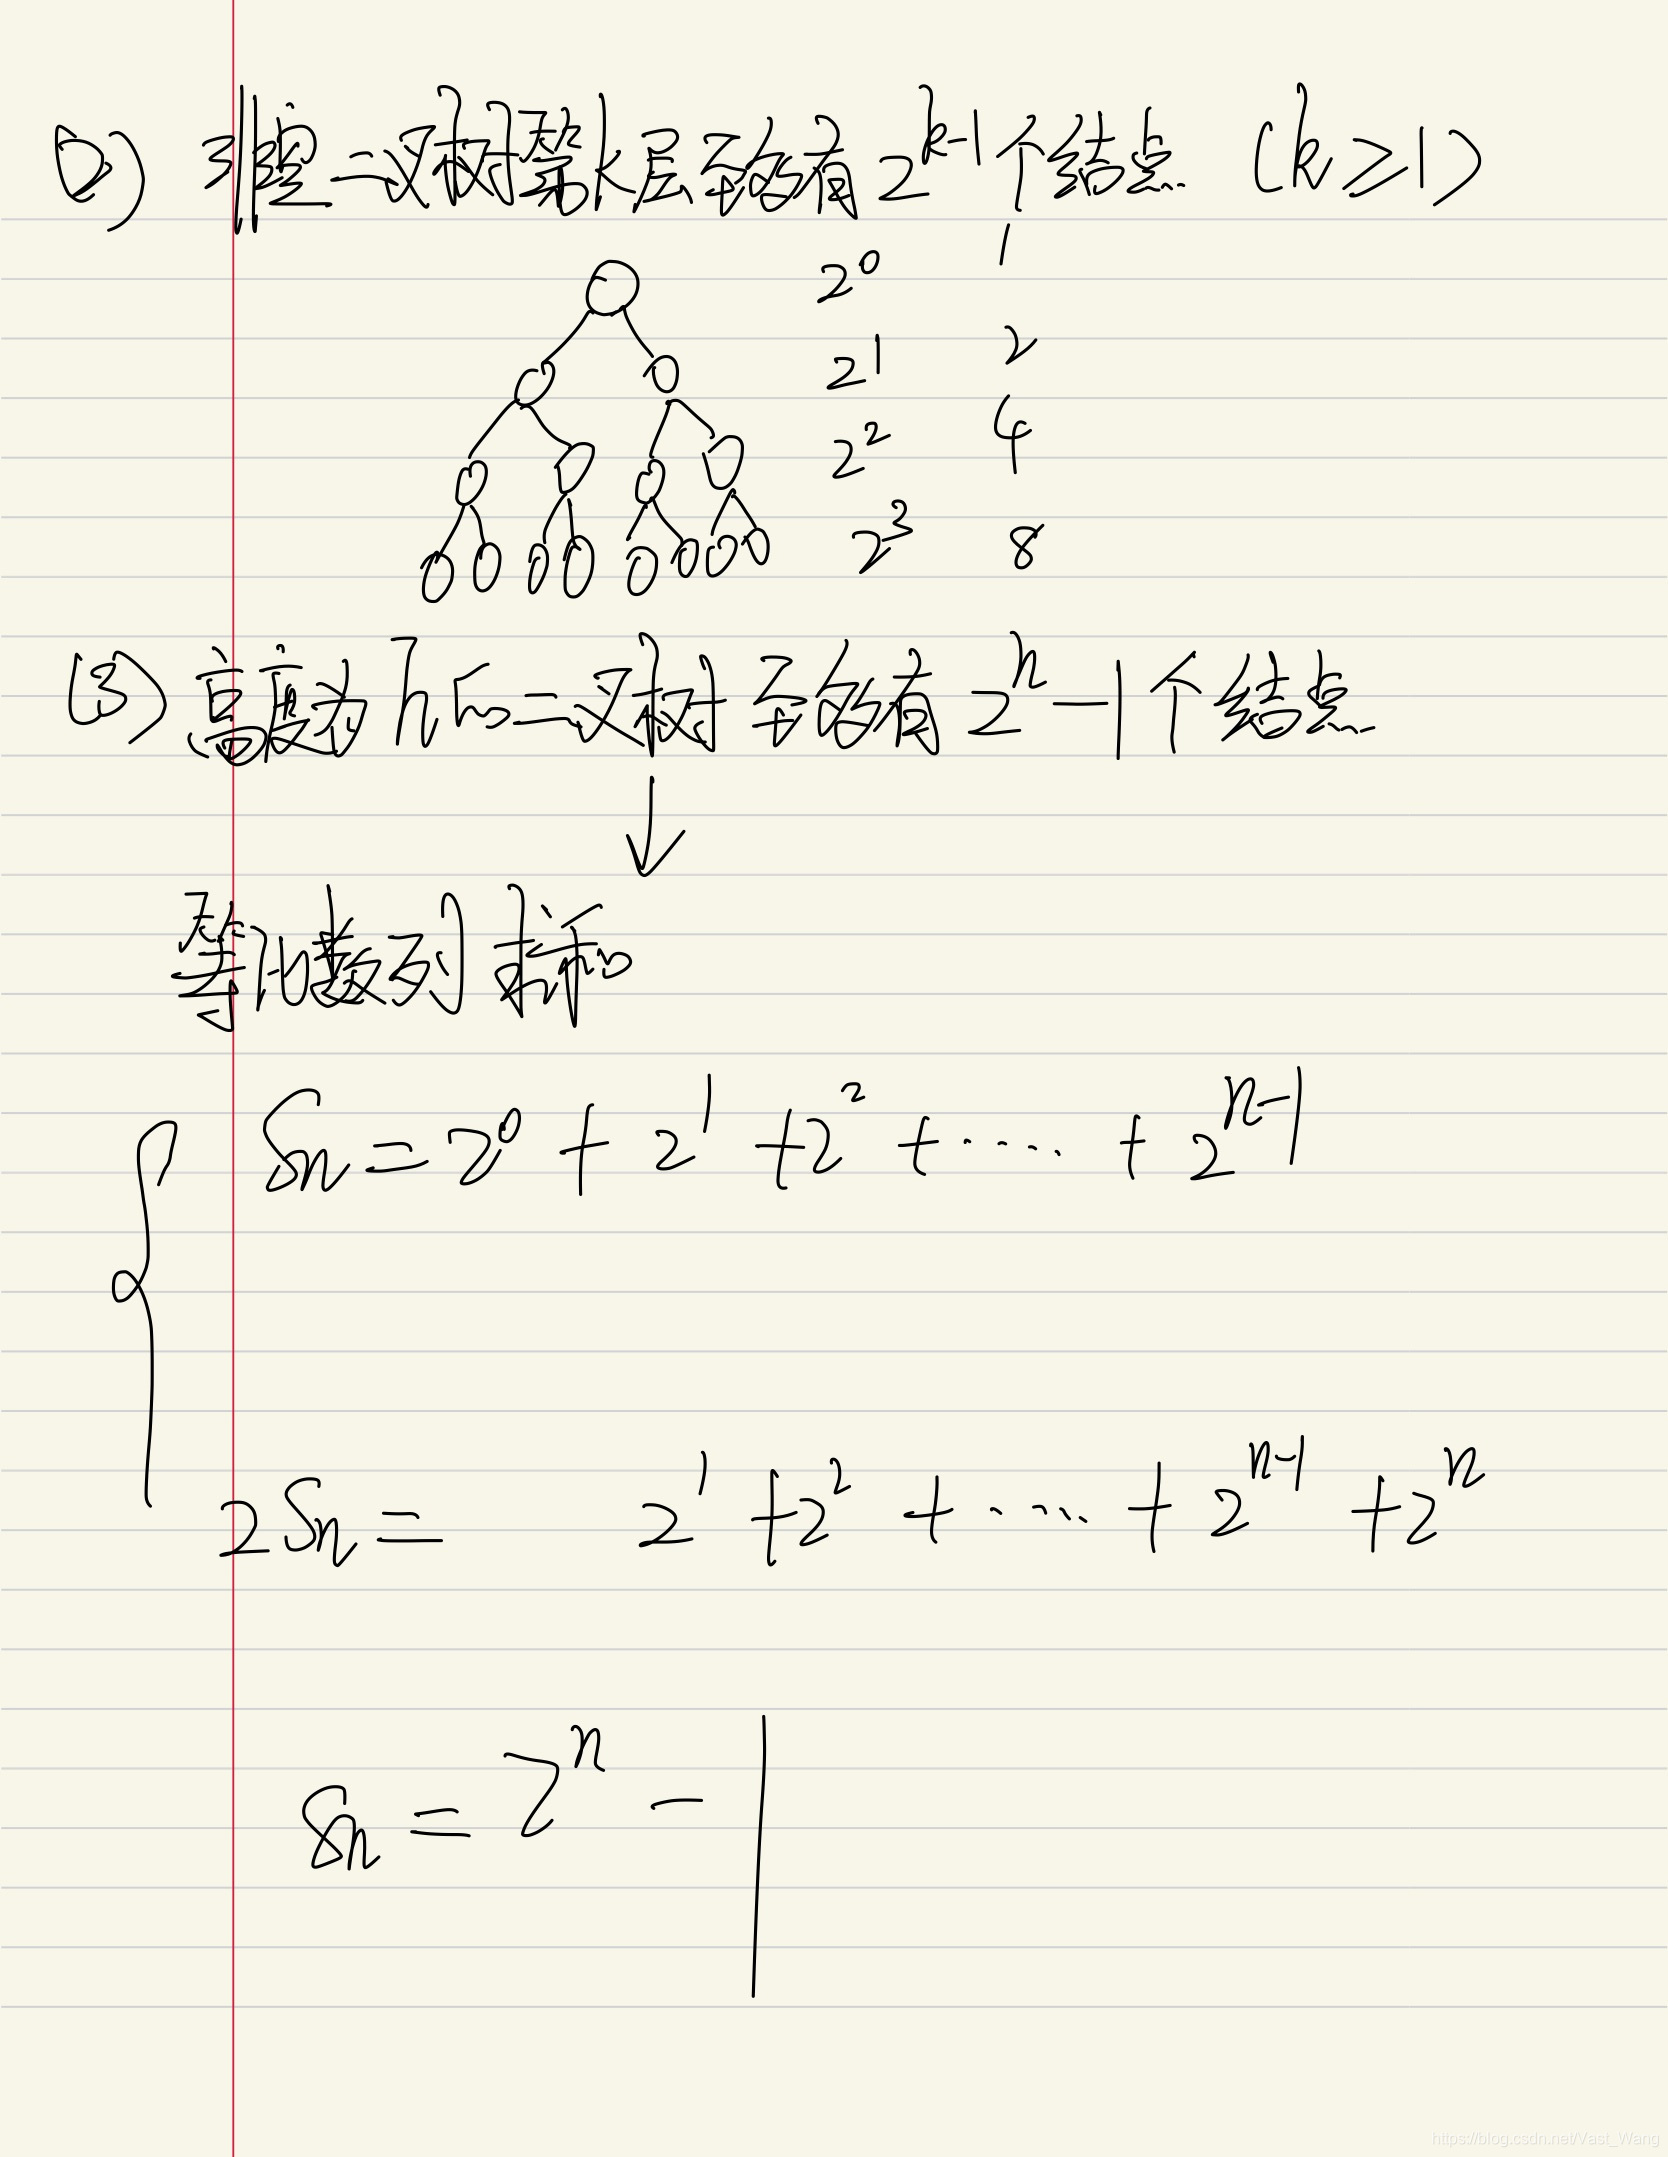 (2) 非空二叉树第k层至多有2^{k-1}个结点 (k≥1)
2^0 1
2^1 2
2^2 4
2^3 8
(3) 高度为h的二叉树至多有2^h-1个结点
↓
等比数列求和
Sn=2^0+2^1+2^2+……+2^{n-1}
2Sn= 2^1+2^2+……+2^{n-1}+2^n
Sn=2^n-1
https://blog.csdn.net/Vast_Wang